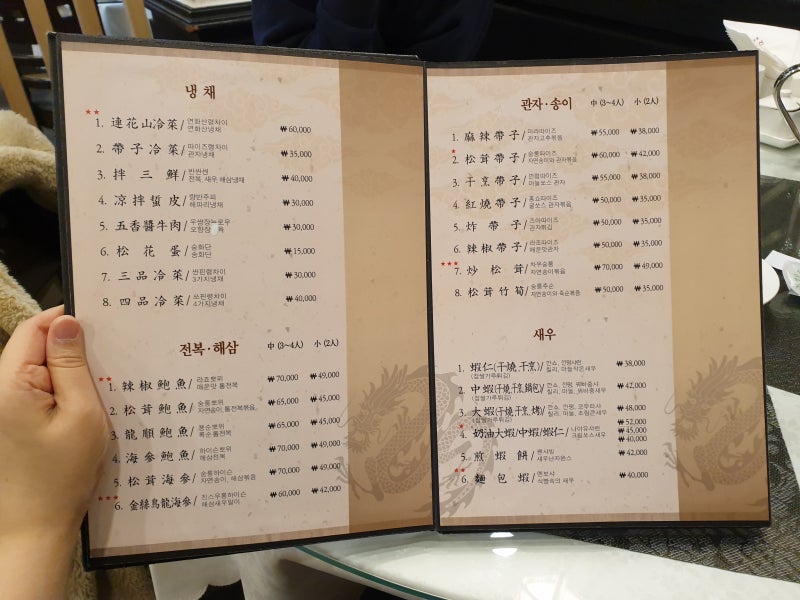 냉 채
★★
1. 連花山冷菜/ 연화산렁차이 ₩60,000
연화산냉채
2. 帶子冷菜/ 따이즈렁차이 ₩35,000
관자냉채
3. 拌三鮮/ 반싼셴 ₩40,000
전복, 새우, 해삼냉채
4. 凉拌蜇皮/ 량반주피 ₩30,000
해파리냉채
5. 五香醬牛肉/ ₩30,000
오향장
6. 松花蛋/ 숭화단 ₩15,000
송화단
7. 三品冷菜/ 싼핀렁차이 ₩30,000
3가지냉채
8. 四品冷菜/ 쓰핀렁차이 ₩40,000
4가지냉채
전복·해삼 中 (3~4人) 小 (2人)
★★
1. 辣椒鮑魚/ 라죠뽀위 ₩70,000 ₩49,000
매운맛 통전복
2. 松茸鮑魚/ 숭룽뽀위 ₩65,000 ₩45,000
자연송이,통전복볶음,
3. 龍順鮑魚/ 룽순뽀위 ₩65,000 ₩45,000
룽순통전복
4. 海參鮑魚/ 하이슨뽀위 ₩70,000 ₩49,000
해삼전복
5. 松茸海參/ 숭룽하이슨 ₩70,000 ₩49,000
자연송이, 해삼볶음
★★★
6. 金絲烏龍海參/ 진스우룽하이슨 ₩60,000 ₩42,000
해삼새우말이
관자·송이 中 (3~4人) 小 (2人)
1. 麻辣帶子/ 마라따이즈 ₩55,000 ₩38,000
관자고추볶음
★
2. 松茸帶子/ 숭룽따이즈 ₩60,000 ₩42,000
자연송이와 관자볶음
3. 干烹帶子/ 깐펑따이즈 ₩55,000 ₩38,000
마늘쏘스 관자
4. 紅燒帶子/ 홍쇼따이즈 ₩50,000 ₩35,000
굴쏘스 관자볶음
5. 炸帶子/ 쟈아따이즈 ₩50,000 ₩35,000
관자튀김
6. 辣椒帶子/ 라죠따이즈 ₩50,000 ₩35,000
매운맛관자
★★★
7. 炒松茸/ 차우숭룽 ₩70,000 ₩49,000
자연송이볶음
8. 松茸竹筍/ 숭룽주순 ₩50,000 ₩35,000
자연송이와 죽순볶음
새우
1. 蝦仁(干燒,干烹)/ 깐쇼, 깐펑새우 ₩38,000
(찹쌀가루튀김) 칠리, 마늘작은새우
2. 中蝦(干燒,干烹,鍋包)/ 깐쇼, 깐펑, 꿔바중새우 ₩42,000
(찹쌀가루튀김) 칠리, 마늘,
3. 大蝦(干燒,干烹,烤)/ 깐쇼, 깐펑, ₩48,000
칠리, 마늘, ₩52,000
★
4. 奶油大蝦/中蝦/蝦仁/ 나이유샤런 ₩45,000
크림쏘스새우 ₩40,000
5. 煎蝦餅/ 젠샤빙 ₩42,000
새우난자완스
★★
6. 麵包蝦/ 멘보샤 ₩40,000
식빵속의 새우